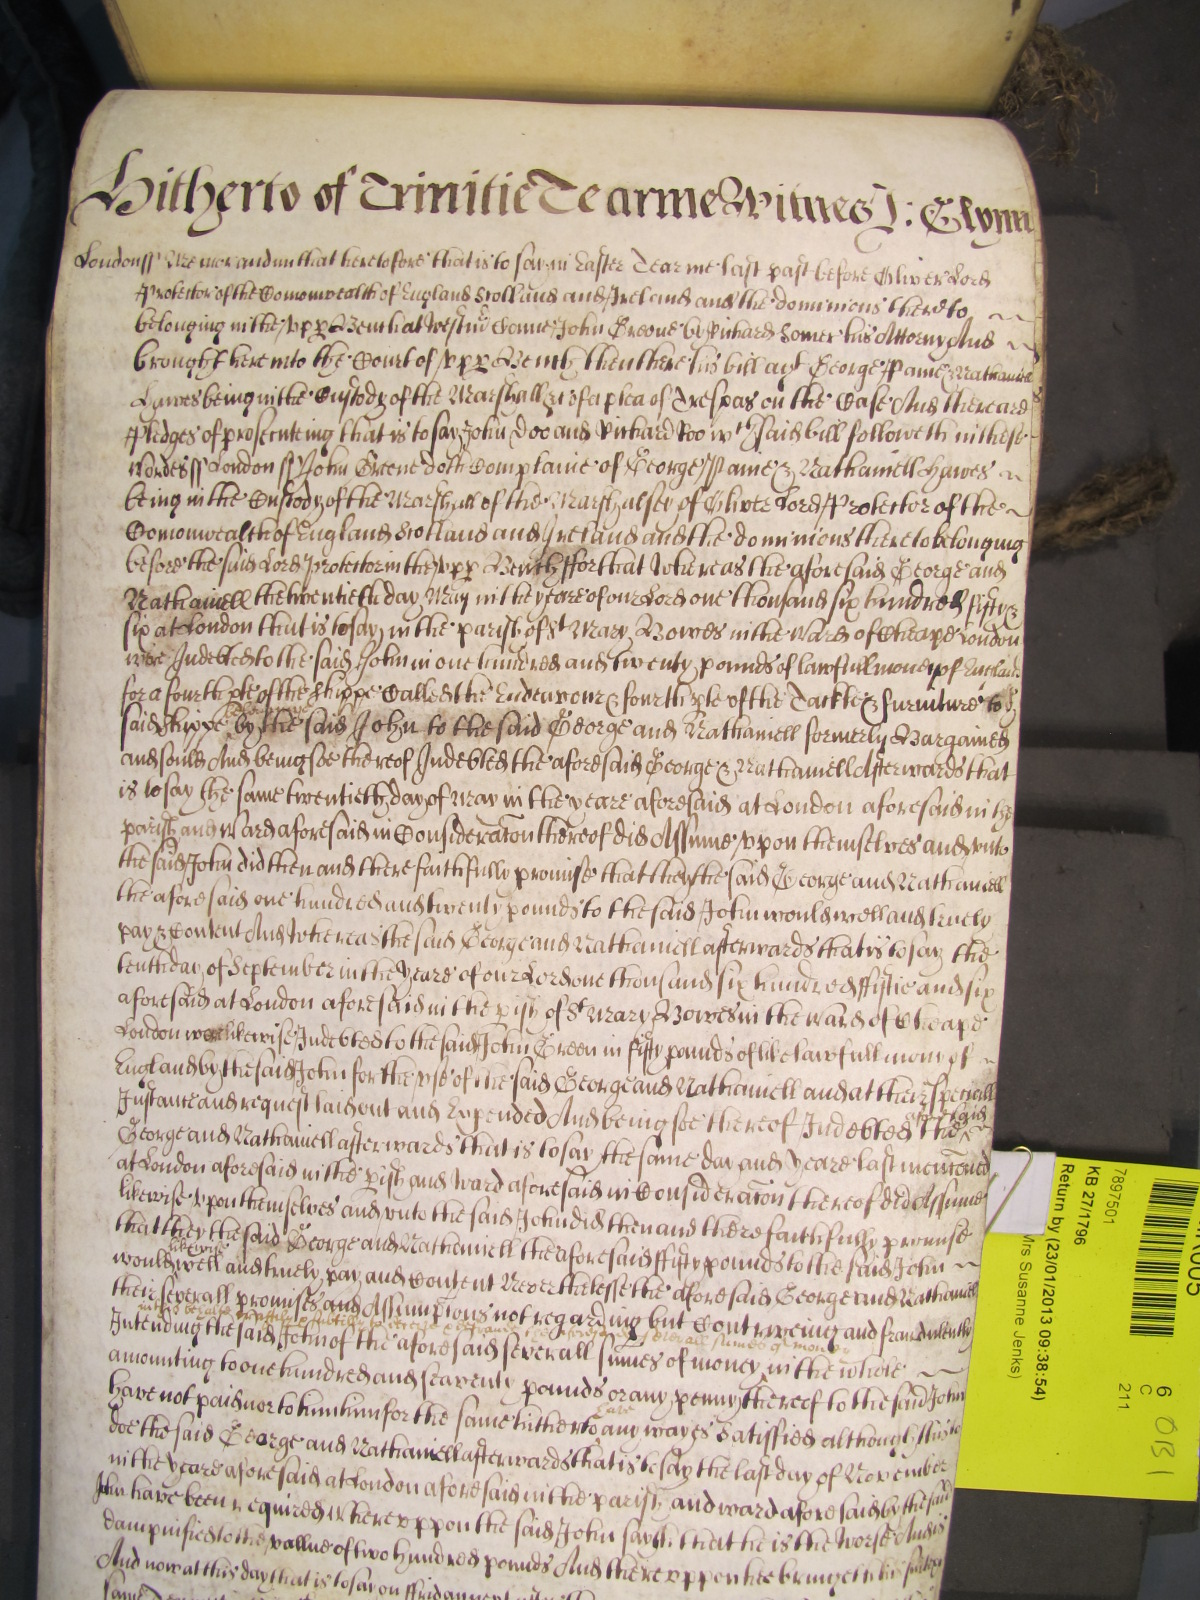 Hitherto of Trinitie Tearme Witnes J: Glynn
London ss Memorandum that heretofore that is to say in Easter Tearme last past before Oliver Lord
Protector of the Comonwealth of England Scotland and Ireland and the dominions thereto
belonging in the upp Bench at Westm Came John Greene by Richard Homer his Attorny And
brought here into the Court of upp Bench then there his bill agt George Paine & Nathaniell
Hawes being in the Custody of the Marshall &c of a plea of Trespas on the Case And there are
Pledges of prosecuteing that is to say John Doo and Richard Roo wch said bill followeth in these
wordes ss London ss John Greene doth Complaine of George Paine & Nathaniell Hawes
being in the Custody of the Marshall of the Marshalsey of Oliver Lord Protector of the
Comonwealth of England Scotland and Ireland and the dominions thereto belonging
before the said Lord protector in the upp Bench ffor that Whereas the aforesaid George and
Nathaniell the twentieth day May in the yeare of our Lord one thousand six hundred fifty &
six at London that is to say in the parish of St Mary Bowes in the Ward of Cheape London
were Indebted to the said John in one hundred and twenty pounds of lawfull money of England
for a fourth pte of the shippe Called the Endeavour & fourth pte of the Tackle & furniture to the
said shippe by the said John to the said George and Nathaniell formerly Bargained
and sould And being soe thereof Indebted the aforesaid George & Nathaniell Afterwards that
is to say the same twentieth day of May in the yeare aforesaid at London aforesaid in the
parish and ward aforesaid in Consideracon thereof did Assume upon themselves and unto
the said John did then and there faithfully promise that they the said George and Nathaniell
the aforesaid one hundred and twenty pounds to the said John would well and truely
pay & Content And Whereas the said George and Nathaniell afterwards that is to say the
tenth day of September in the yeare of our Lord one thousand six hundred fiftie and six
aforesaid at London aforesaid in the pish of St Mary Bowes in the Ward of Cheape
London were likewise Indebted to the said John Green in fifty pounds of like lawfull mony of
England by the said John for the use of the said George and Nathaniell and at their speciall
Instance and request laid out and Expended And being soe thereof Indebted the
aforesaid
George and Nathaniell afterwards that is to say the same day and yeare last mencioned
at London aforesaid in the pish and ward aforesaid in Consideracon thereof did Assume
likewise upon themselves and unto the said John did then and there faithfully promise
that they the said George and Nathaniell the aforesaid fifty pounds to the said John
likewise
would well and truely pay and Content Neverthelesse the aforesaid George and Nathaniell
their severall promises and Assumptions not regarding but Contriveing and fraudulently
Intending the said John of the aforesaid severall sumes of money in the whole
amounting to one hundred and seaventy pounds or any penny thereof to the said John
have not paid nor to him him for the same hitherto any wayes Satisfied although thus to
have
doe the said George and Nathaniell afterwards that is to say the last day of November
in the yeare aforesaid at London aforesaid in the parish and ward aforesaid by the said
John have been required Whereuppon the said John sayth that he is the Worse And is
dampnified to the vallue of two hundred pounds And thereuppon hee bringeth his suite &c
And now at this day that is to say on ffriday next after
same Tearme
7897501
KB 27/1796
Return by (23/01/2013 09:38:54)
Mrs Susanne Jenks)
6
C
211